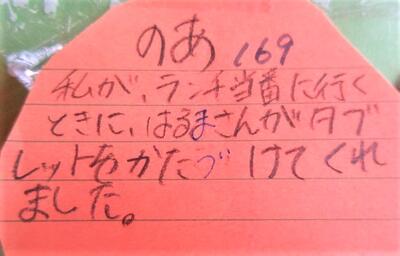 のあ 169
私が、ランチ当番に行く
ときに、はるまさんがタブ
レットをかたづけてくれ
ました。